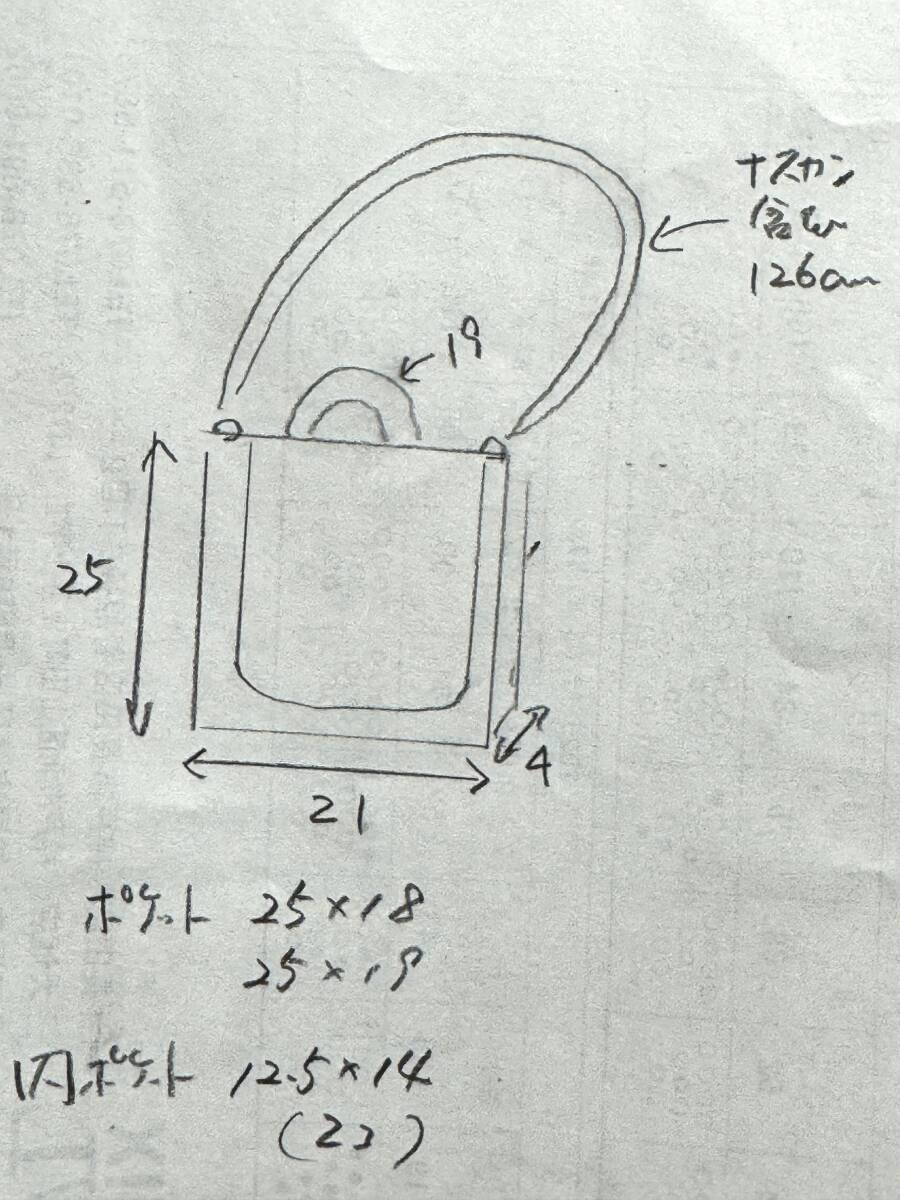 ナスカン
含む
126cm
19
25
4
21
ポケット 25×18
25×19
内ポケット 12.5×14
(23)